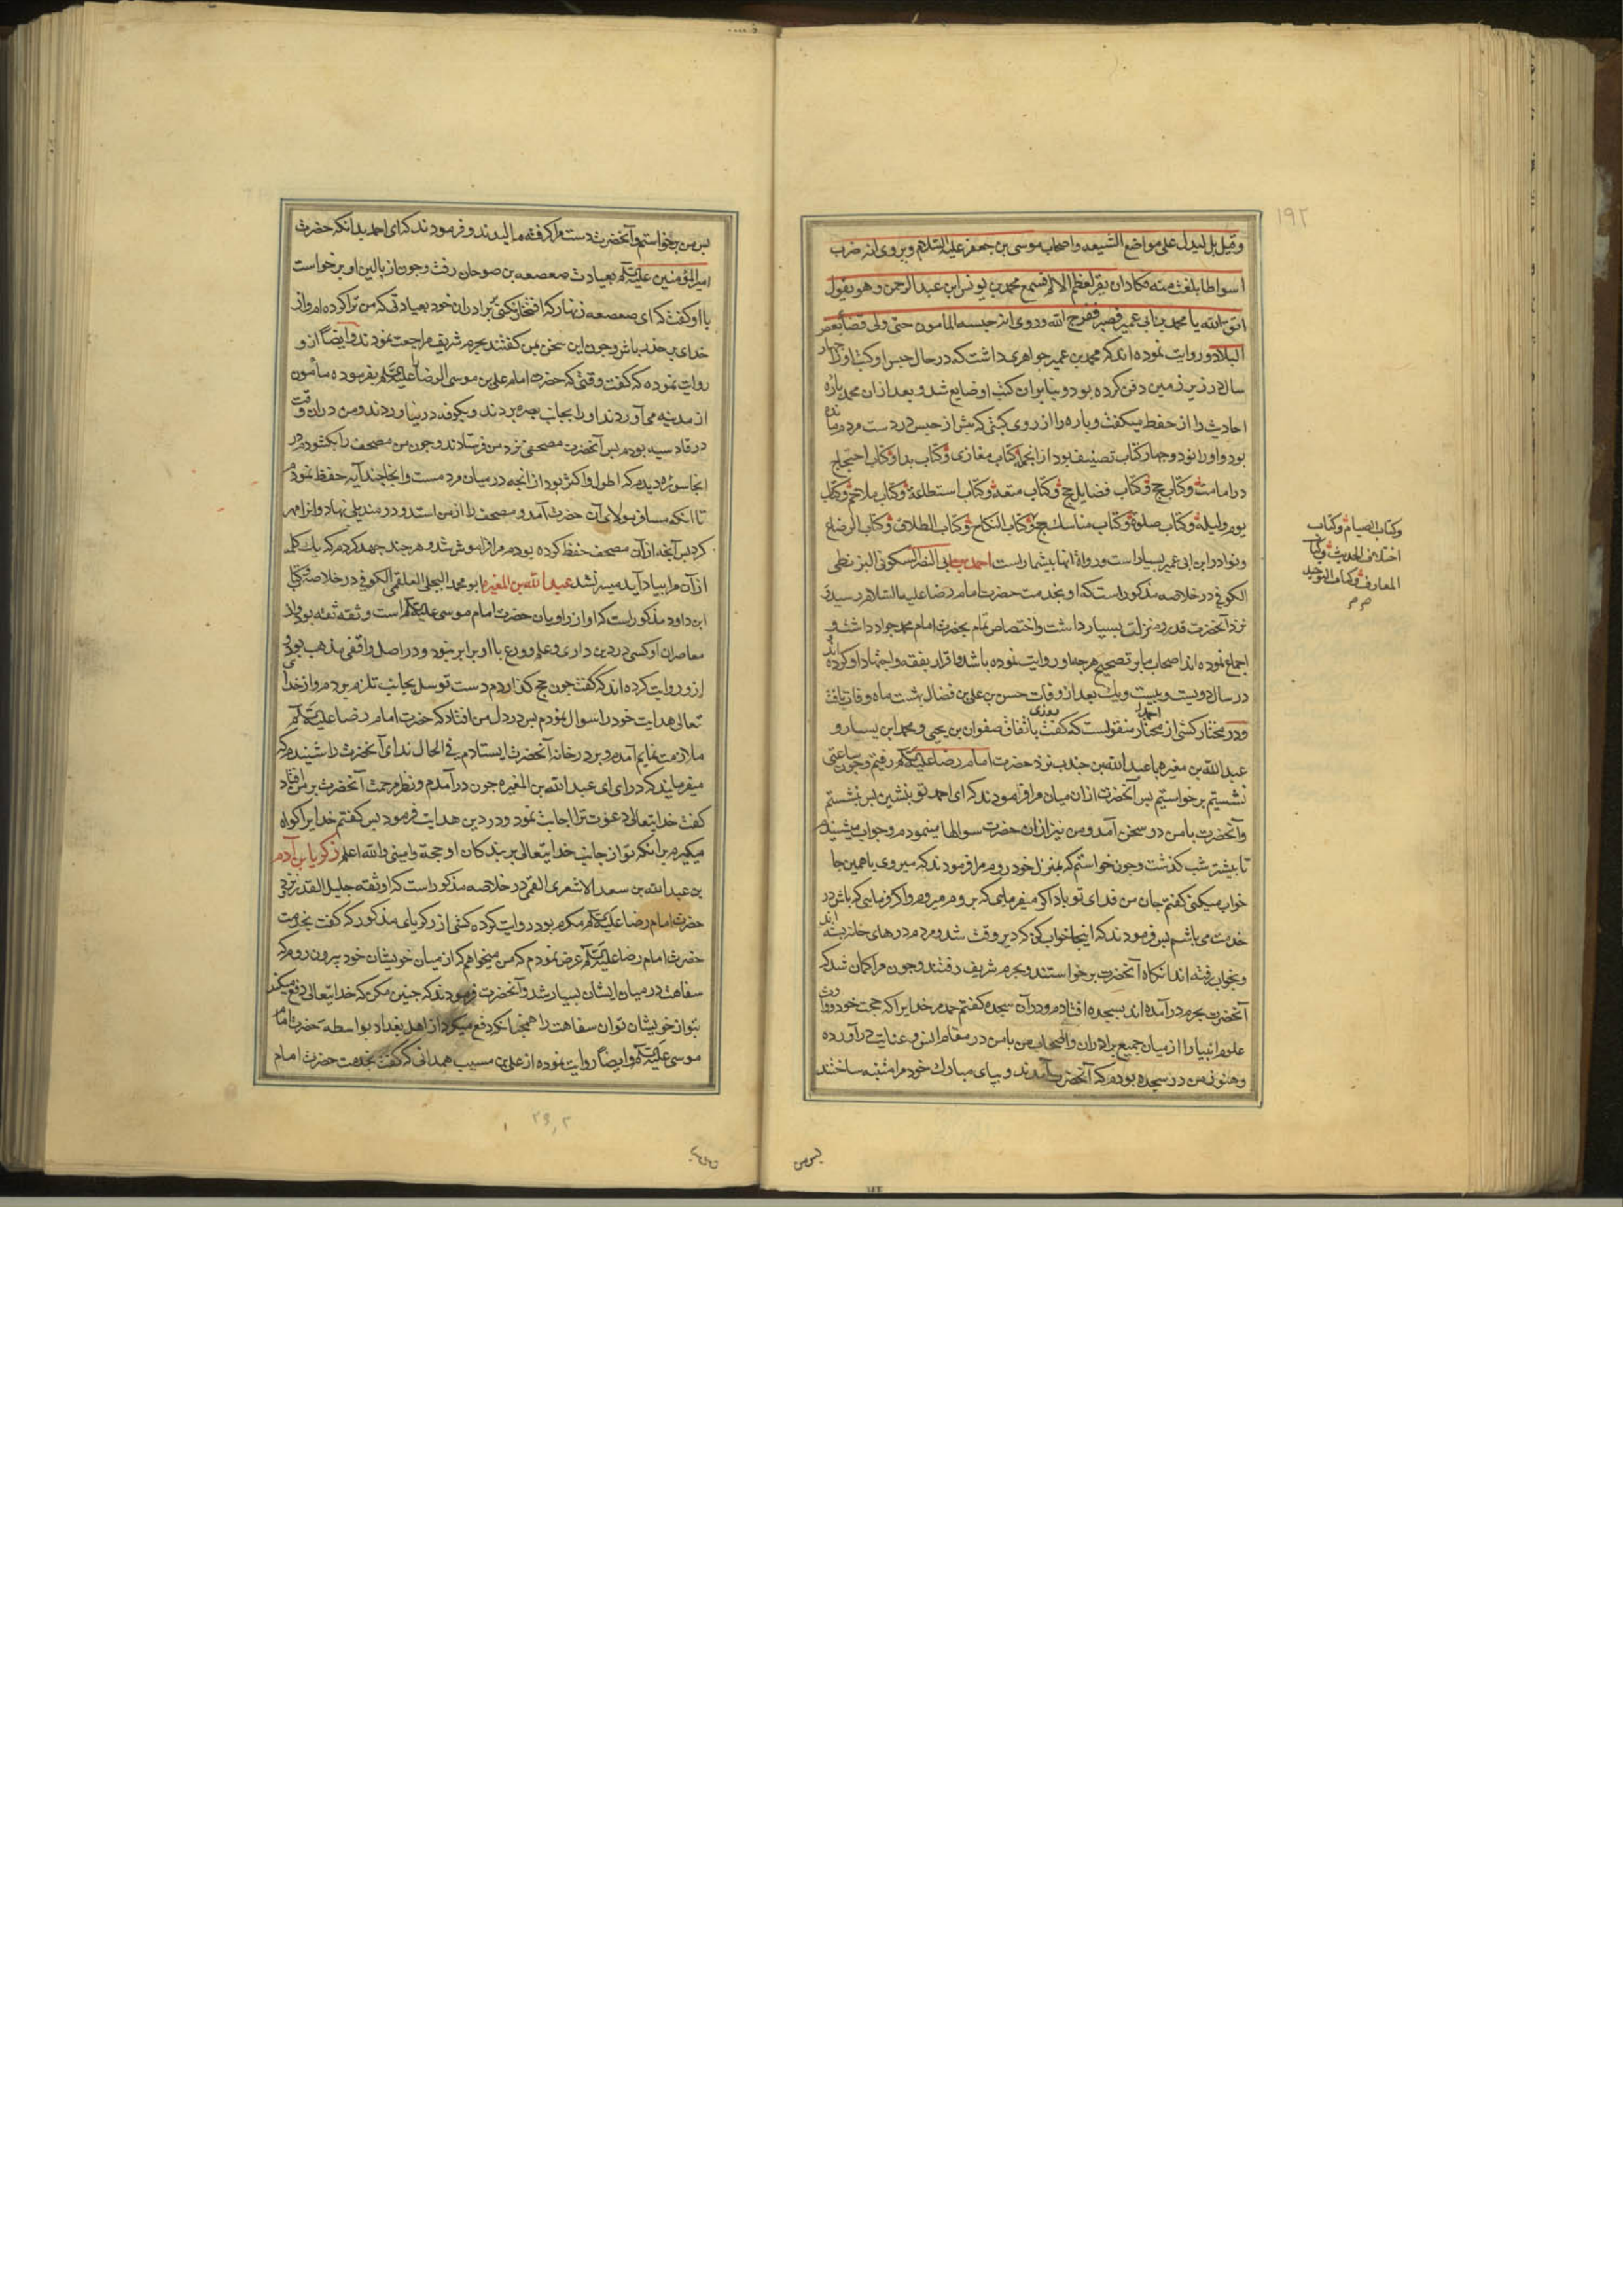 ١٩٢
وقیل بل لیدل علی مواضع الشیعه واصحاب موسی بن جعفر علیه السّلام و روی انه ضرب
اسواطا بلغت منه فکاد ان یقر لعظم الالم فسمع محمد بن یونس ابن عبد الرحمن وهو یقول
اتق الله یا محمد بن ابی عمیر فصبر ففرج الله و روی انه حبسه المامون حتی ولی قضا بعض
البلاد و روایت نموده اند که محمد بن عمیر جواهری داشت که در حال حبس او کتب او را چهار
سال در زیر زمین دفن کرده بود و بنابر ان کتب او ضایع شد و بعد از ان محمد پاره
احادیث را از حفظ میکفت و پاره را از روی کتبی که پیش از حبس در دست مردم مانده
بود و او را نود و چهار کتاب تصنیف بود از انجمله کتاب مغازی و کتاب بدا و کتاب احتجاج
در امامت و کتاب حج و کتاب فضایل حج و کتاب متعه و کتاب استطاعة و کتاب ملاحم و کتاب
یوم و لیله و کتاب صلوة و کتاب مناسك حج و کتاب النکاح و کتاب الطلاق و کتاب الرضاع
وکتاب الصیام و کتاب
اختلاف الحدیث و کتاب
المعارف و کتاب التوحید
و نوادر ابن ابی عمیر بسیار است و رواة انها بیشمار است احمد بن ابی النصر السکونی البزنطی
الکوفی در خلاصه مذکور است که او بخدمت حضرت امام رضا علیه السّلام رسیده
نزد آنحضرت قدر و منزلت بسیار داشت و اختصاص تمام بحضرت امام محمد جواد داشت و
اجماع نموده اند اصحاب ما بر تصحیح هر چه او روایت نموده باشد و اقرار بفقه و اجتهاد او کرده اند
در سال دویست و بیست و یك بعد از وفات حسن بن علی بن فضال بهشت ماه وفات یافت
و در مختار کشی از احمد مختار منقولست که کفت روزی باتفاق صفوان بن یحیی و محمد ابن یسار و
عبد الله بن مغیره با عبد الله بن جندب نزد حضرت امام رضا علیه السلام رفتیم و چون ساعتی
نشستیم برخواستیم پس آنحضرت از ان میان مرا فرمودند که ای احمد تو بنشین پس نشستم
و آنحضرت با من در سخن آمد و من نیز از ان حضرت سوالها مینمودم و جواب میشنیدم
تا بیشتر شب کذشت و چون خواستم که بمنزل خود روم مرا فرمودند که میروی یا همین جا
خواب میکنی کفتم جان من فدای تو باد اکر میفرمایی که بروم میروم و اکر فرمایی که باش در
خدمت می باشم پس فرمودند که اینجا خواب کن که دیر وقت شد و مردم درهای خانه بسته اند
و بخواب رفته اند انکاه آنحضرت برخواستند و بحرم شریف رفتند و چون مرا کمان شد که
آنحضرت بحرم در آمده اند بسجده افتادم و در آن سجده کفتم حمد مر خدایرا که حجت خود و وارث
علوم انبیا را از میان جمیع برادران و اصحاب من با من در مقام انس و عنایت در آورده
و هنوز من در سجده بودم که آنحضرت آمدند و بپای مبارك خود مرا متنبه ساختند
پس من
پس من برخواستم و آنحضرت دست مرا کرفته مالیدند و فرمودند که ای احمد بدانکه حضرت
امیر المؤمنین علیه السلام بعیادت صعصعه بن صوحان رفت و چون از بالین او برخواست
با او کفت که ای صعصعه زنهار که افتخار نکنی بر برادران خود بعیادتی که من ترا کرده ام و از
خدای بر حذر باش و چون این سخن بمن کفتند بحرم شریف مراجعت نمودند و ایضا از و
روایت نموده که کفت وقتی که حضرت امام علی بن موسی الرضا علیه السلام بفرموده مأمون
از مدینه می آوردند او را بجانب بصره بردند و بکوفه در نیاوردند و من در ان وقت
در قادسیه بودم پس آنحضرت مصحفی نزد من فرستادند و چون من مصحف را بکشودم در
انجا سوره دیدم که اطول و اکثر بود از انچه در میان مردمست و انجا چند آیه حفظ نمودم
تا انکه مسافر مولای آن حضرت آمد و مصحف را از من استد و در مندیلی نهاد و انرا مهر
کرد پس آنچه از آن مصحف حفظ کرده بودم مرا فراموش شد و هر چند جهد کردم که یك کلمه
از آن مرا بیاد آید میسر نشد عبد الله بن المغیره ابو محمد البجلی العلقمی الکوفی در خلاصه و کتاب
ابن داود مذکور است که او از راویان حضرت امام موسی علیه السلام است و ثقه ثقه بود و از
معاصران او کسی در دین داری و علم و ورع با او برابر نبود و در اصل واقفی مذهب بود و
از و روایت کرده اند که کفت چون حج کذاردم دست توسل بجانب تلزم بردم و از خدای
تعالی هدایت خود را سوال نمودم پس در دل من افتاد که حضرت امام رضا علیه السلام
ملازمت نمایم آمدم و بر در خانه آنحضرت ایستادم فی الحال ندای آنحضرت را شنیدم که
میفرمایند که در ای ای عبد الله بن المغیره چون در آمدم و نظر مرحمت آنحضرت بر من افتاد
کفت خدایتعالی دعوت ترا اجابت نمود و در دین هدایت فرمود پس کفتم خدایرا کواه
میکیرم بر انکه تو از جانب خدایتعالی بر بندکان او حجة و امینی والله اعلم زکریا بن آدم
بن عبد الله بن سعد الاشعری القمی در خلاصه مذکور است که او ثقه جلیل القدر نزد
حضرت امام رضا علیه السلام مکرم بود روایت کرده کشی از زکریای مذکور که کفت بخدمت
حضرت امام رضا علیه السلام عرض نمودم که من میخواهم که از میان خویشان خود بیرون روم که
سفاهت در میان ایشان بسیار شد و آنحضرت فرمودند که چنین مکن که خدایتعالی دفع میکند
بتو از خویشان تو ان سفاهت را همچنانکه دفع میکرد از اهل بغداد بواسطه حضرت امام
موسی علیه السلام و ایضا روایت نموده از علی بن مسیب همدانی که کفت بخدمت حضرت امام